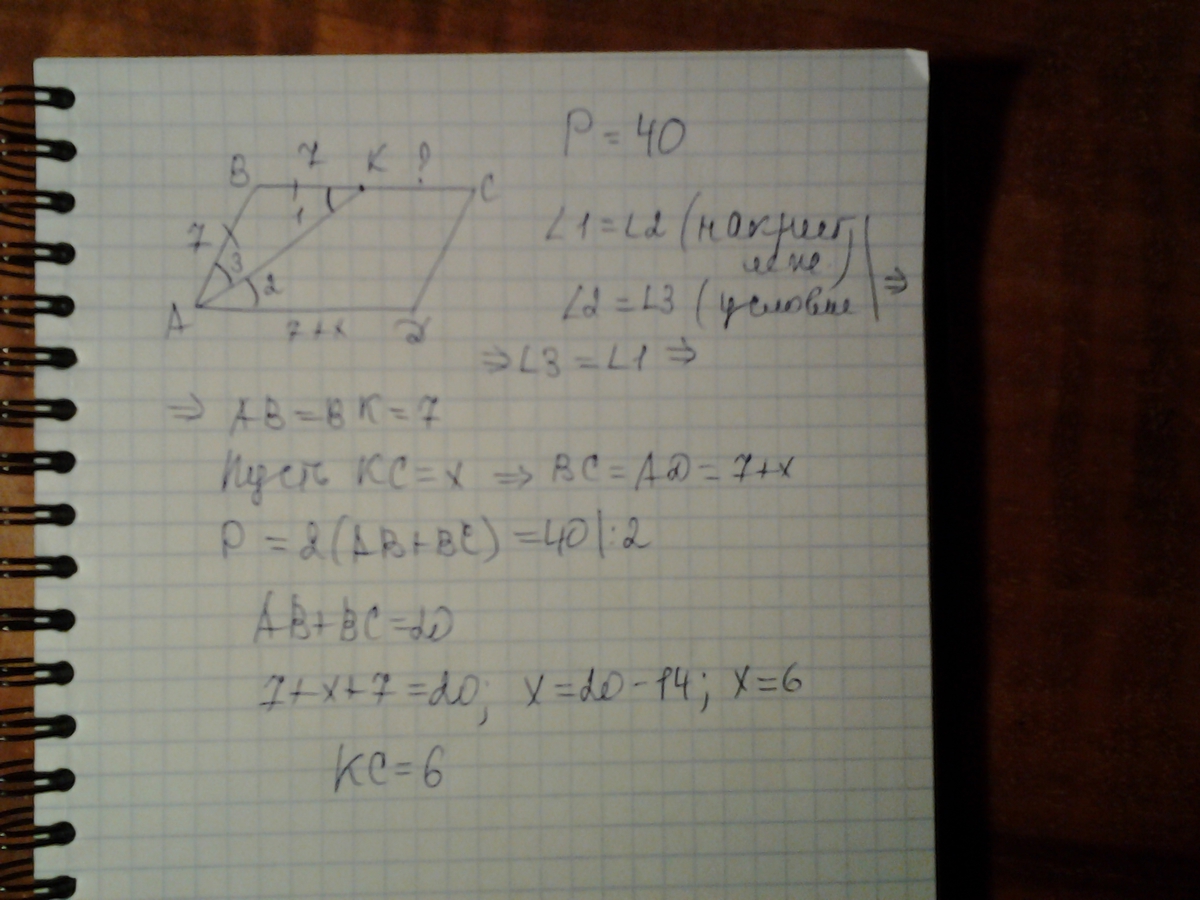 P = 40
B 7 K ? C
1
7
3
2
A 7+x D
∠1 = ∠2 (накрест
леж.)
∠2 = ∠3 (условие | ⇒
⇒ ∠3 = ∠1 ⇒
⇒ AB = BK = 7
Пусть KC = x ⇒ BC = AD = 7+x
P = 2(AB+BC) = 40 |:2
AB+BC=20
7+x+7=20; x=20-14; x=6
KC=6